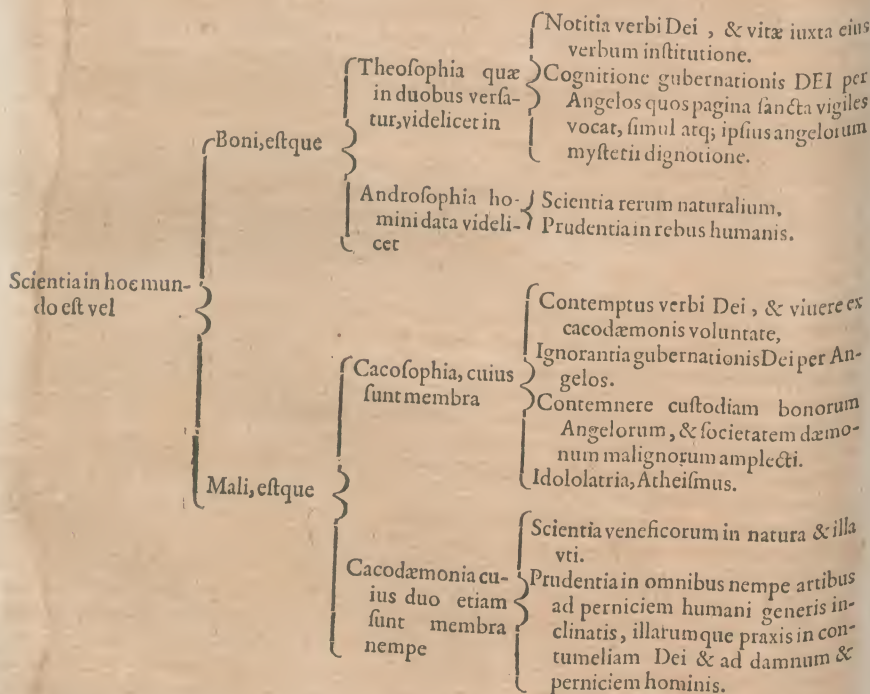 Scientia in hoc mun-
do eſt vel
Boni, eſtque
Theoſophia quæ
in duobus verſa-
tur, videlicet in
Notitia verbi Dei , & vitæ iuxta eius
verbum inſtitutione.
Cognitione gubernationis DEI per
Angelos quos pagina ſancta vigiles
vocat, ſimul atq; ipſius angelorum
myſterii dignotione.
Androſophia ho-
mini data videli-
cet
Scientia rerum naturalium,
Prudentia in rebus humanis.
Mali, eſtque
Cacoſophia, cuius
ſunt membra
Contemptus verbi Dei , & viuere ex
cacodæmonis voluntate,
Ignorantia gubernationis Dei per An-
gelos.
Contemnere cuſtodiam bonorum
Angelorum, & ſocietatem dæmo-
num malignorum amplecti.
Idololatria, Atheiſmus.
Cacodæmonia cu-
ius duo etiam
ſunt membra
nempe
Scientia veneficorum in natura & illa
vti.
Prudentia in omnibus nempe artibus
ad perniciem humani generis in-
clinatis, illarumque praxis in con-
tumeliam Dei & ad damnum &
perniciem hominis.